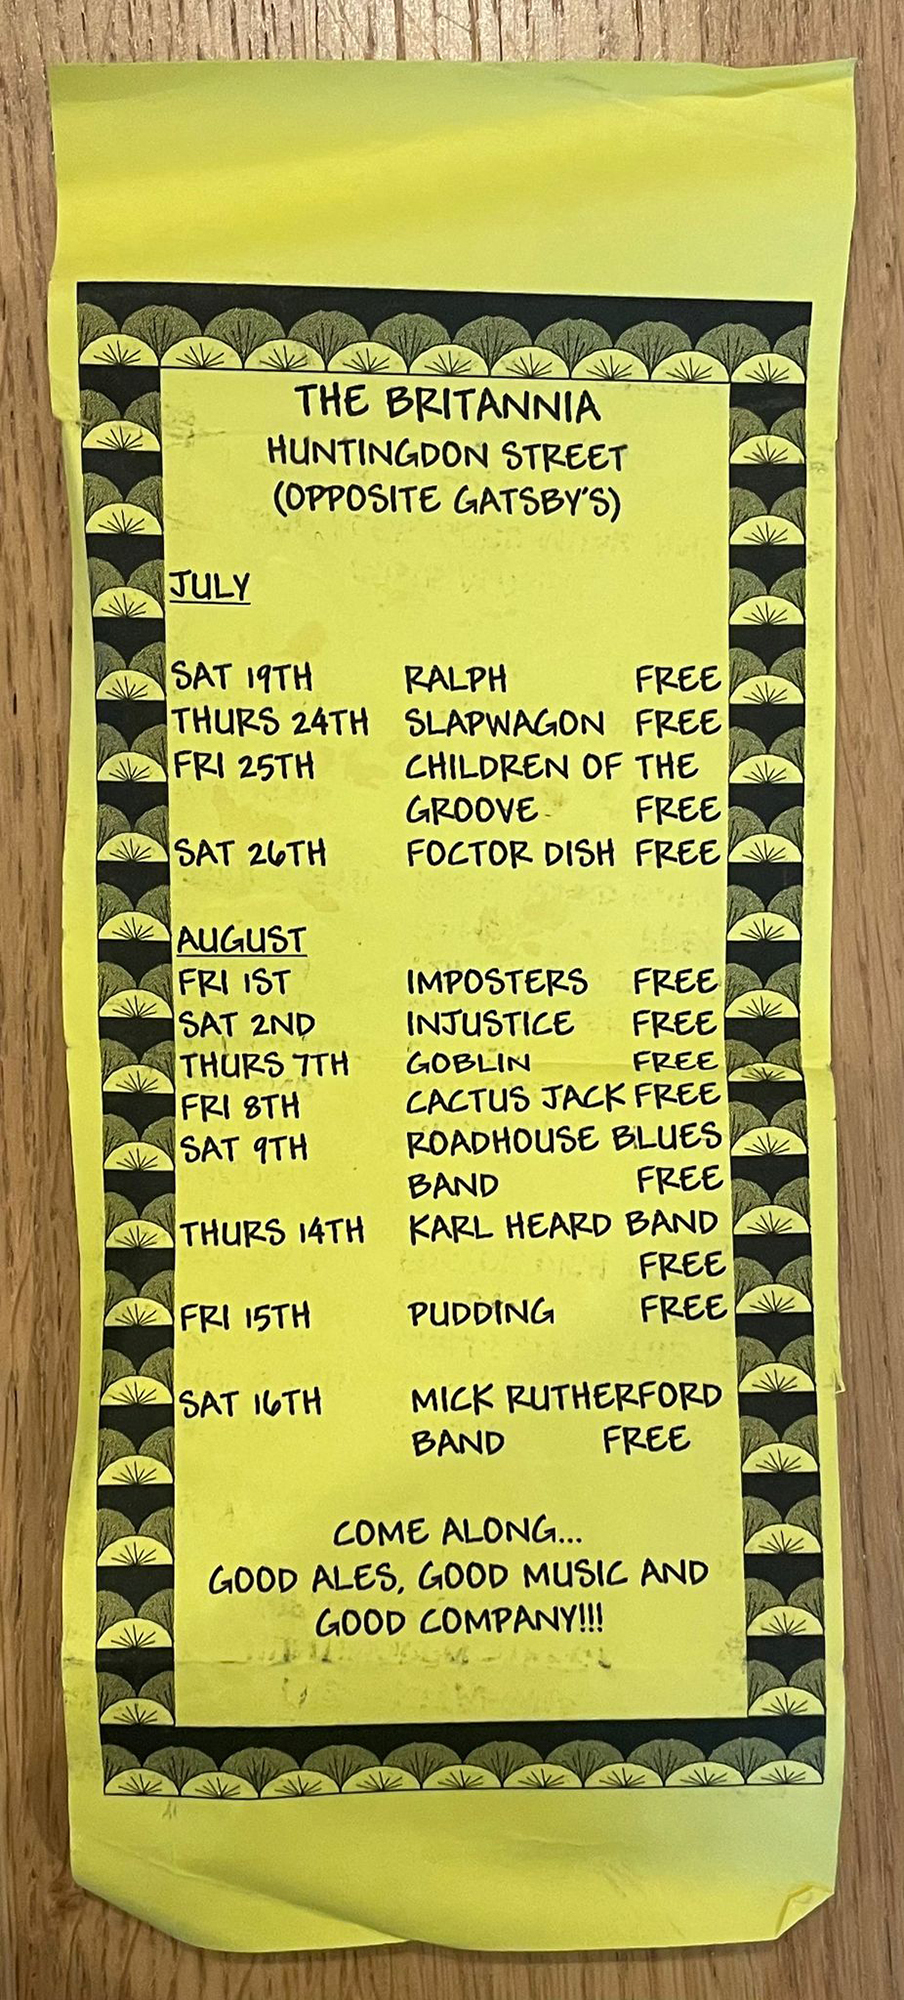 THE BRITANNIA
HUNTINGDON STREET
(OPPOSITE GATSBY'S)
JULY
SAT 19TH RALPH FREE
THURS 24TH SLAPWAGON FREE
FRI 25TH CHILDREN OF THE
GROOVE FREE
SAT 26TH FOCTOR DISH FREE
AUGUST
FRI 1ST IMPOSTERS FREE
SAT 2ND INJUSTICE FREE
THURS 7TH GOBLIN FREE
FRI 8TH CACTUS JACK FREE
SAT 9TH ROADHOUSE BLUES
BAND FREE
THURS 14TH KARL HEARD BAND
FREE
FRI 15TH PUDDING FREE
SAT 16TH MICK RUTHERFORD
BAND FREE
COME ALONG...
GOOD ALES, GOOD MUSIC AND
GOOD COMPANY!!!